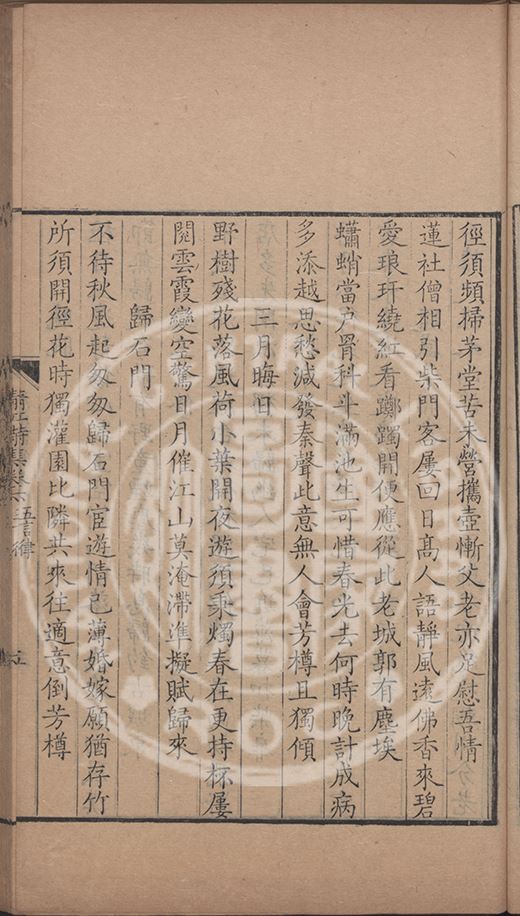 徑須頻掃茅堂苦未營攜壺慚父老亦足慰吾情
蓮社僧相引柴門客屢回日高人語靜風遠佛香來碧
愛琅玕繞紅看躑躅開便應從此老城郭有塵埃
蠨蛸當户罥科斗滿池生可惜春光去何時晚計成病
多添越思愁減發秦聲此意無人會芳樽且獨傾
三月晦日
野樹殘花落風荷小葉開夜遊須秉燭春在更持杯屢
閱雲霞變空驚日月催江山莫淹滯准擬賦歸來
歸石門
不待秋風起匆匆歸石門宦遊情已薄婚嫁願猶存竹
所須開徑花時獨灌園比隣共來往適意倒芳樽
詩集卷六
五言律